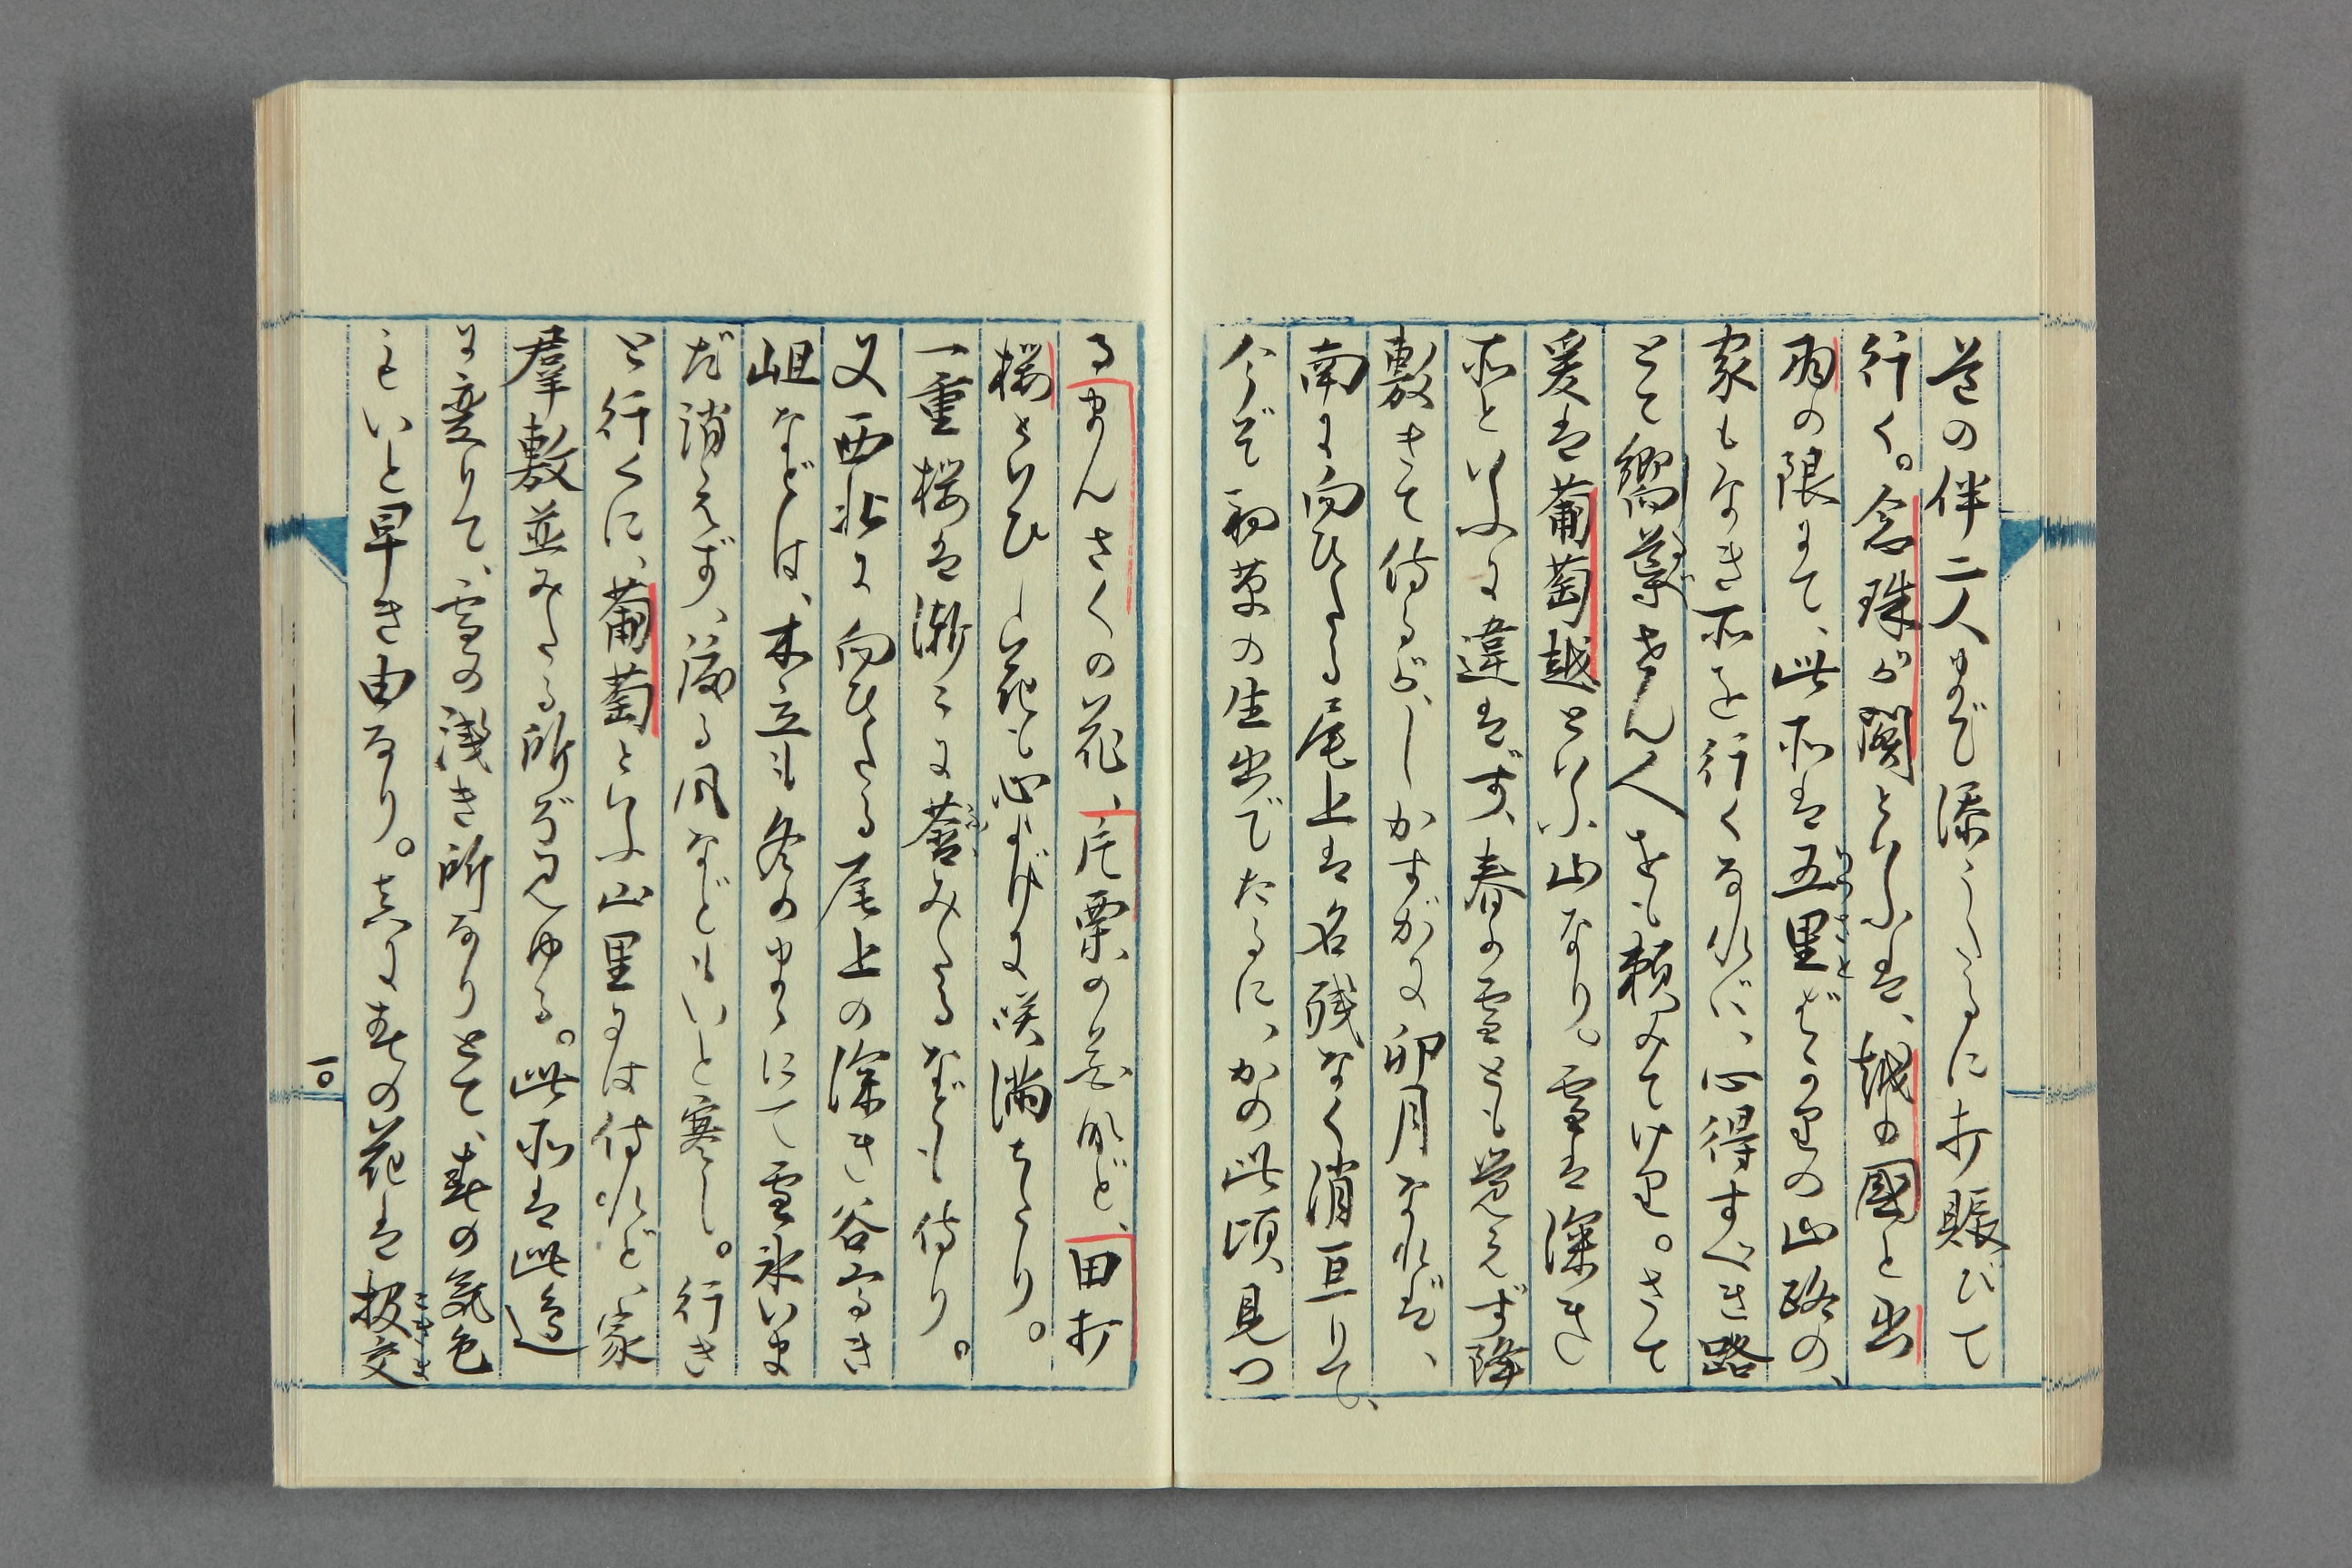 道の伴二人まで添うたるに打賑びて
行く。念珠が関といふは、越の国と出
羽の限にて、此所は五里ばかりの山路の、
家もなき所を行くなれば、心得すべき路
とて嚮導せん人をも頼みてけり。さて
爰は葡萄越といふ山なり。雪は深き
所といふに違はず、春の雪とも覚えず降
敷きて侍るが、しかすがに卯月なれば、
南に向ひたる尾上は名残なく消亘りて、
今ぞ初草の生出でたるに、かの此頃見つ
るまんさくの花、片栗の花など、田打
桜といひし花も心よげに咲満ちたり。
一重桜は漸々に蒼みたるなども侍り。
又西北に向ひたる尾上の深き谷高き
岨などは、木立も冬のまゝにて雪氷いま
だ消えず、渡る風などもいと寒し。行き
と行くに、葡萄といふ山里には侍れど、家
羣敷並みたる所ぞ見ゆる。此所は此邊
に変りて、雪の浅き所なりとて、春の気色
もいと早き由なり。真に春の花は扱交
うつさと
こきま
一〇